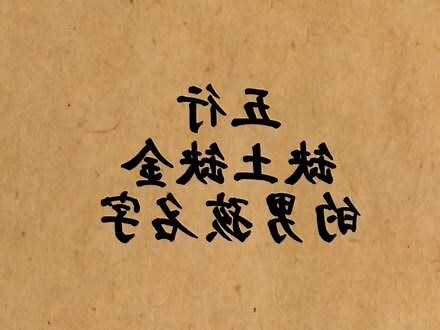 五行
缺土缺金
的男孩名字